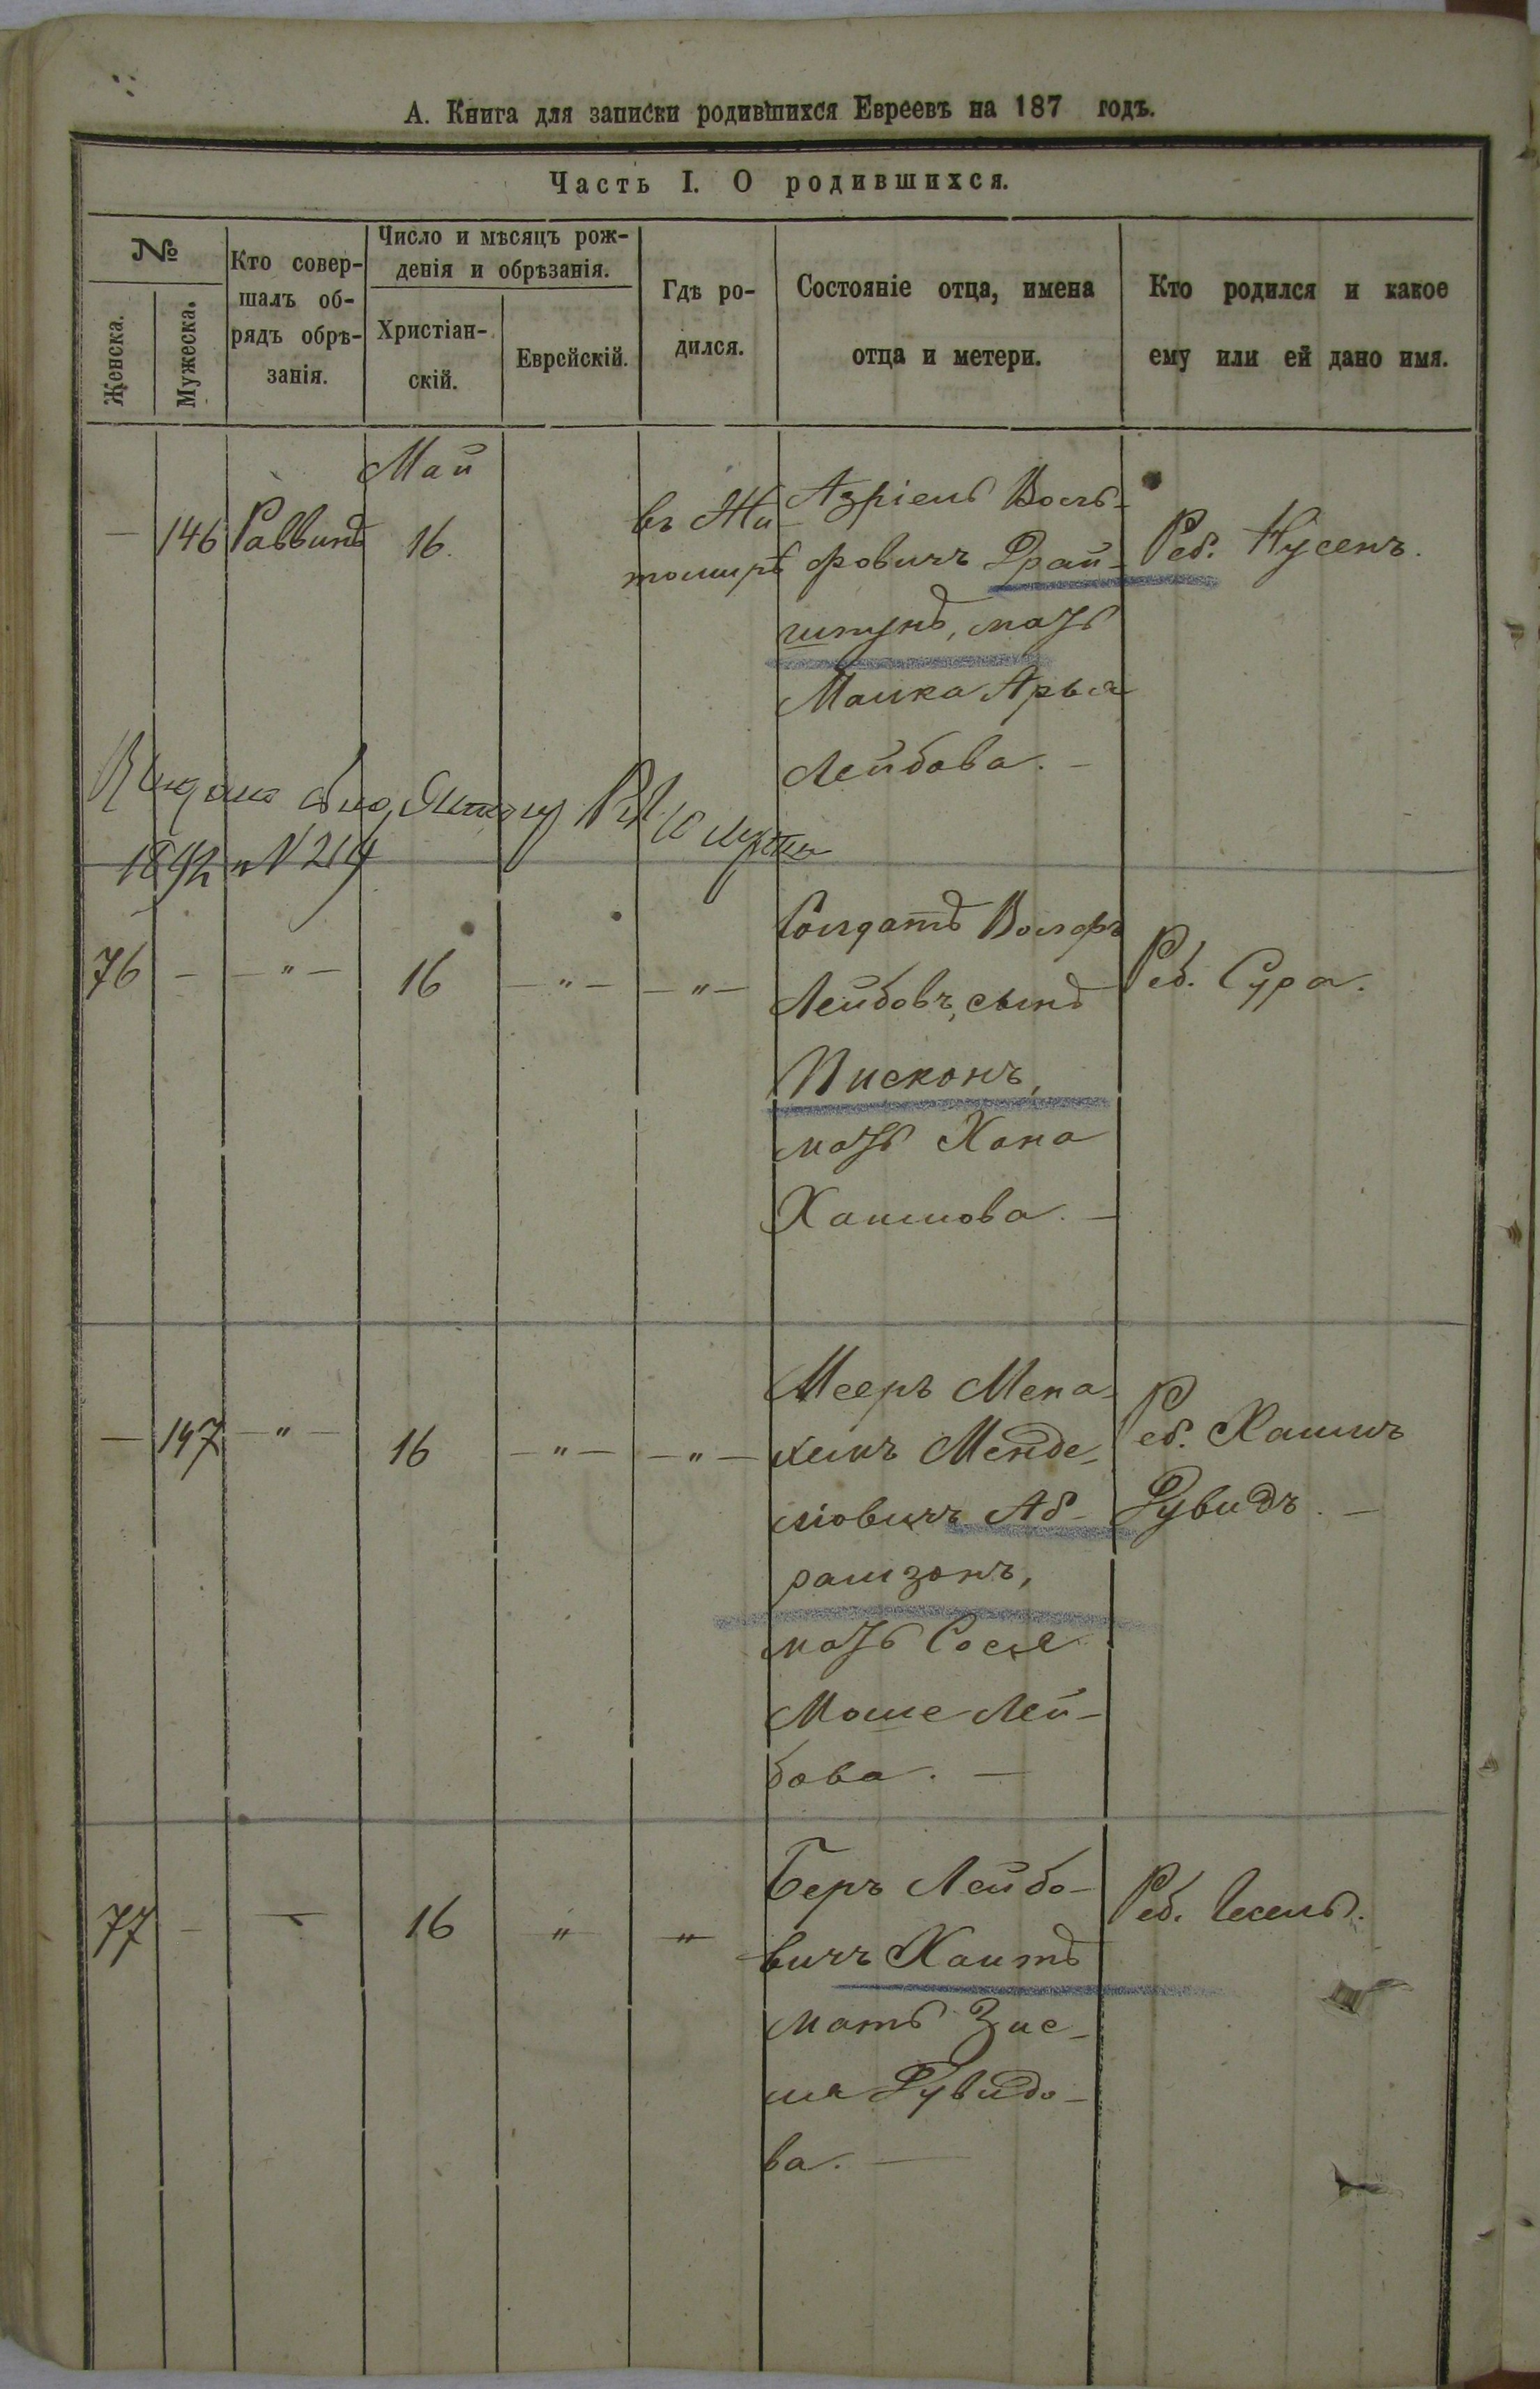 А. Книга для записки родившихся Евреевъ на 187 годъ.
Часть I. О родившихся.
№
Женска.
Мужеска.
Кто совер-
шалъ об-
рядъ обрѣ-
занія.
Число и мѣсяцъ рож-
денія и обрѣзанія.
Христіан-
скій.
Еврейскій.
Гдѣ ро-
дился.
Состояніе отца, имена
отца и метери.
Кто родился и какое
ему или ей дано имя.
Май
— 146 Раввинъ 16.
въ Жи-
томирѣ
Азріель Воль-
фовичъ Драй-
штунъ, мать
Малка Арья
Лейбова. —
Реб. Нусенъ.
1892 № 214
76 — — " — 16 — " — — " —
Солдатъ Вольфъ
Лейбовъ, сынъ
Писконъ,
мать Хана
Хаимова. —
Реб. Сура.
— 147 — " — 16 — " — — " —
Мееръ Мена-
химъ Менде-
ліовичъ Аб-
рамзонъ,
мать Сося
Моше Лей-
бова. —
Реб. Хаимъ
Дувидъ. —
77 — — 16 " "
Беръ Лейбо-
вичъ Хаитъ
мать Зис-
ля Дувидо-
ва. —
Реб.